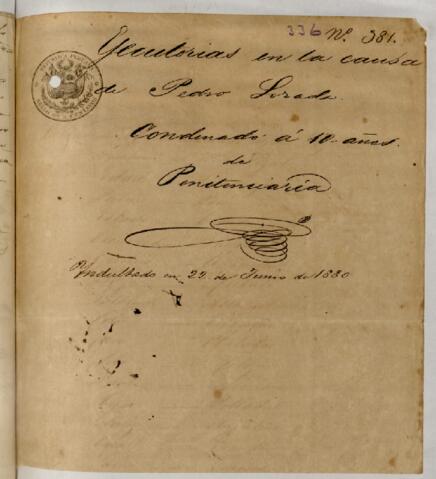 336 Nº. 381.
Yecutorias en la causa
de Pedro Lozada
Condenado á 10 años
de
Penitenciaría
Yndultado en 22 de Junio de 1880